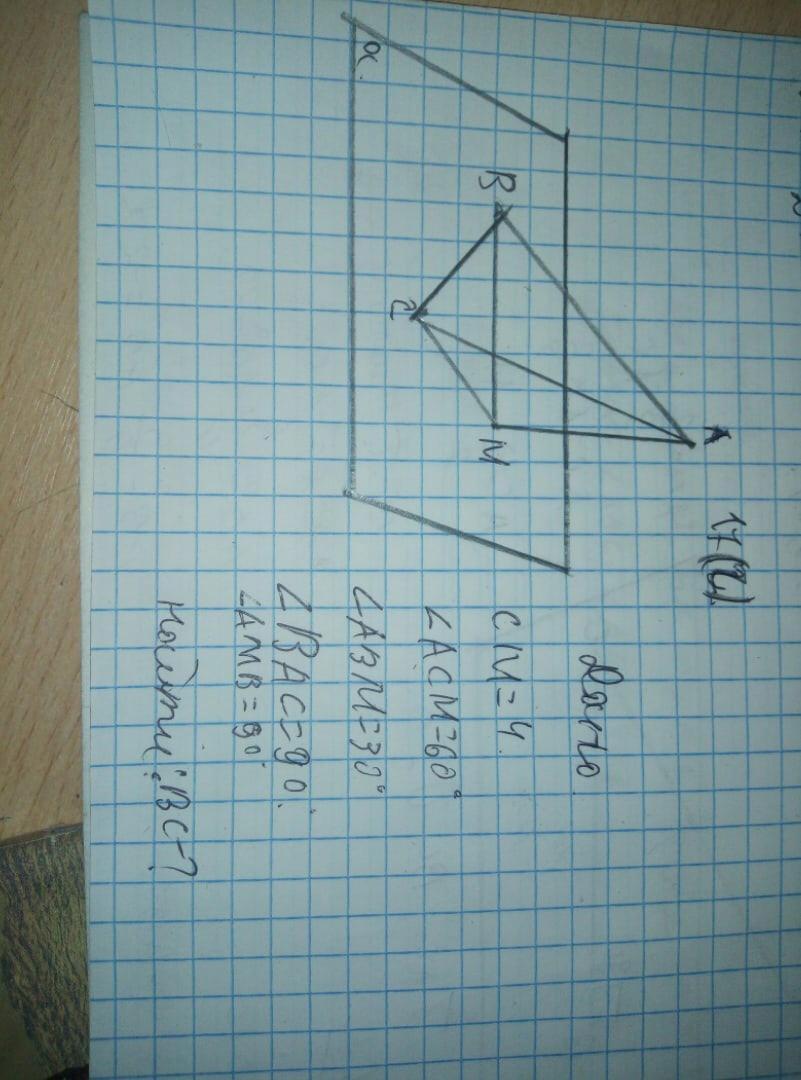 17(2).
Дано.
CM=4.
∠ACM=60°
∠ABM=30°
∠BAC=90°.
∠AMB=90°
Найти: BC-?
A
B
M
C
α